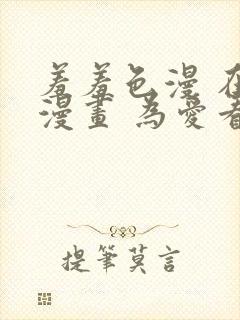 羞羞色漫 在
漫畫 為愛看
提筆莫言